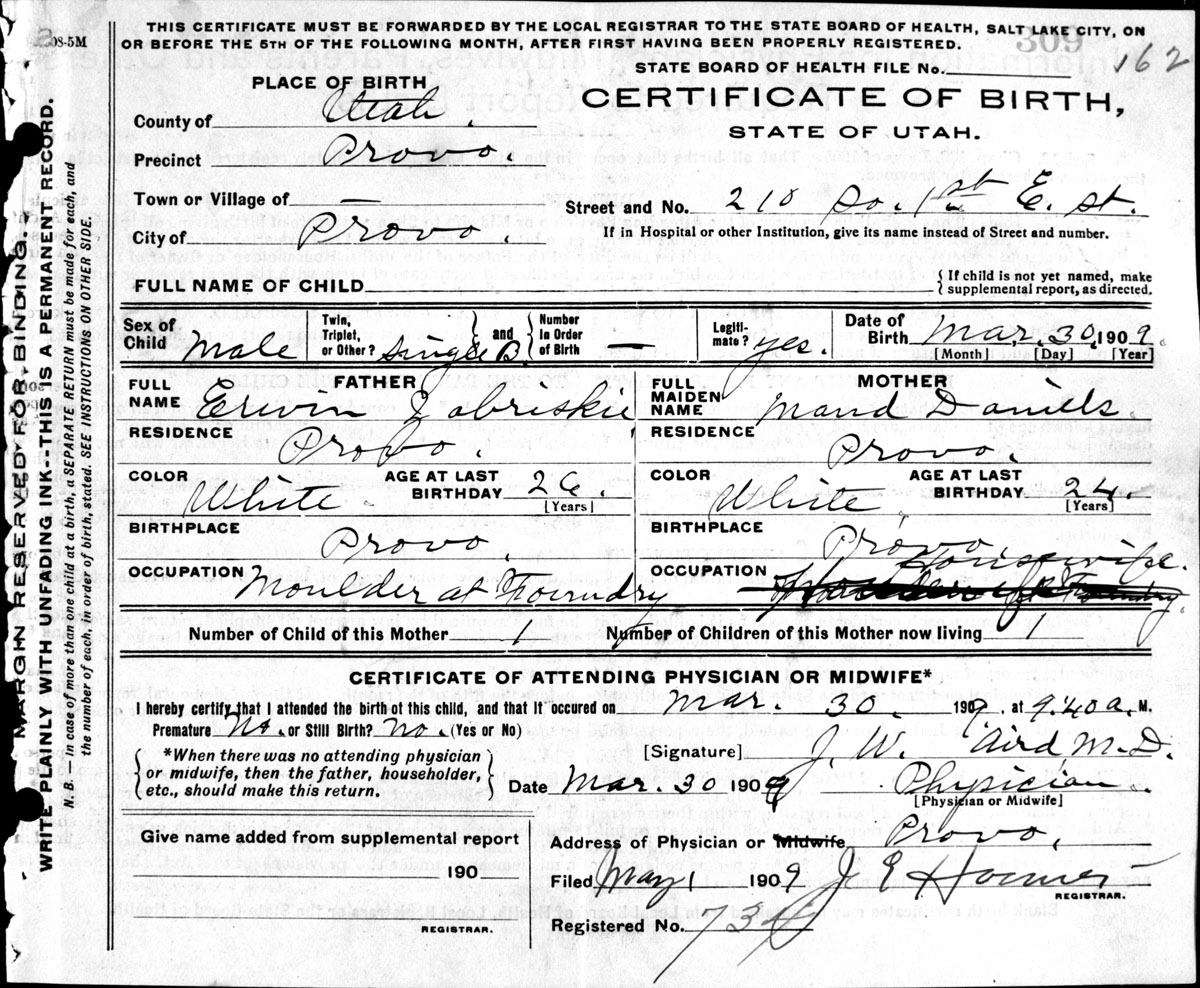 08-5M
THIS CERTIFICATE MUST BE FORWARDED BY THE LOCAL REGISTRAR TO THE STATE BOARD OF HEALTH, SALT LAKE CITY, ON
OR BEFORE THE 5TH OF THE FOLLOWING MONTH, AFTER FIRST HAVING BEEN PROPERLY REGISTERED.
309
STATE BOARD OF HEALTH FILE No. 162
PLACE OF BIRTH
CERTIFICATE OF BIRTH,
STATE OF UTAH.
County of Utah.
Precinct Provo.
Town or Village of —
Street and No. 210 So. 1st E. St.
City of Provo.
If in Hospital or other Institution, give its name instead of Street and number.
FULL NAME OF CHILD
{ If child is not yet named, make
supplemental report, as directed.
Sex of Child Male
Twin, Triplet, or Other? Single B } and { Number in Order of Birth —
Legiti- mate? yes.
Date of Birth Mar. 30, 1909.
[Month] [Day] [Year]
FATHER
FULL NAME Erwin Zabriskie
RESIDENCE Provo.
COLOR White.
AGE AT LAST BIRTHDAY 26.
[Years]
BIRTHPLACE Provo.
OCCUPATION Moulder at Foundry
MOTHER
FULL MAIDEN NAME Maud Daniels.
RESIDENCE Provo.
COLOR White
AGE AT LAST BIRTHDAY 24.
[Years]
BIRTHPLACE Provo.
OCCUPATION Housewife.
Number of Child of this Mother 1 Number of Children of this Mother now living 1
CERTIFICATE OF ATTENDING PHYSICIAN OR MIDWIFE*
I hereby certify that I attended the birth of this child, and that it occured on Mar. 30. 1909. at 9.40 a. M.
Premature No. or Still Birth? No. (Yes or No)
*When there was no attending physician
or midwife, then the father, householder,
etc., should make this return.
[Signature] J. W. Aird M.D.
Date Mar. 30 1909 Physician.
[Physician or Midwife]
Give name added from supplemental report
190
REGISTRAR.
Address of Physician or Midwife Provo.
Filed May 1 1909 J E Hoomer
REGISTRAR.
Registered No. 734
MARGIN RESERVED FOR BINDING.
WRITE PLAINLY WITH UNFADING INK--THIS IS A PERMANENT RECORD.
N. B. In case of more than one child at a birth, a SEPARATE RETURN must be made for each, and
the number of each, in order of birth, stated. SEE INSTRUCTIONS ON OTHER SIDE.